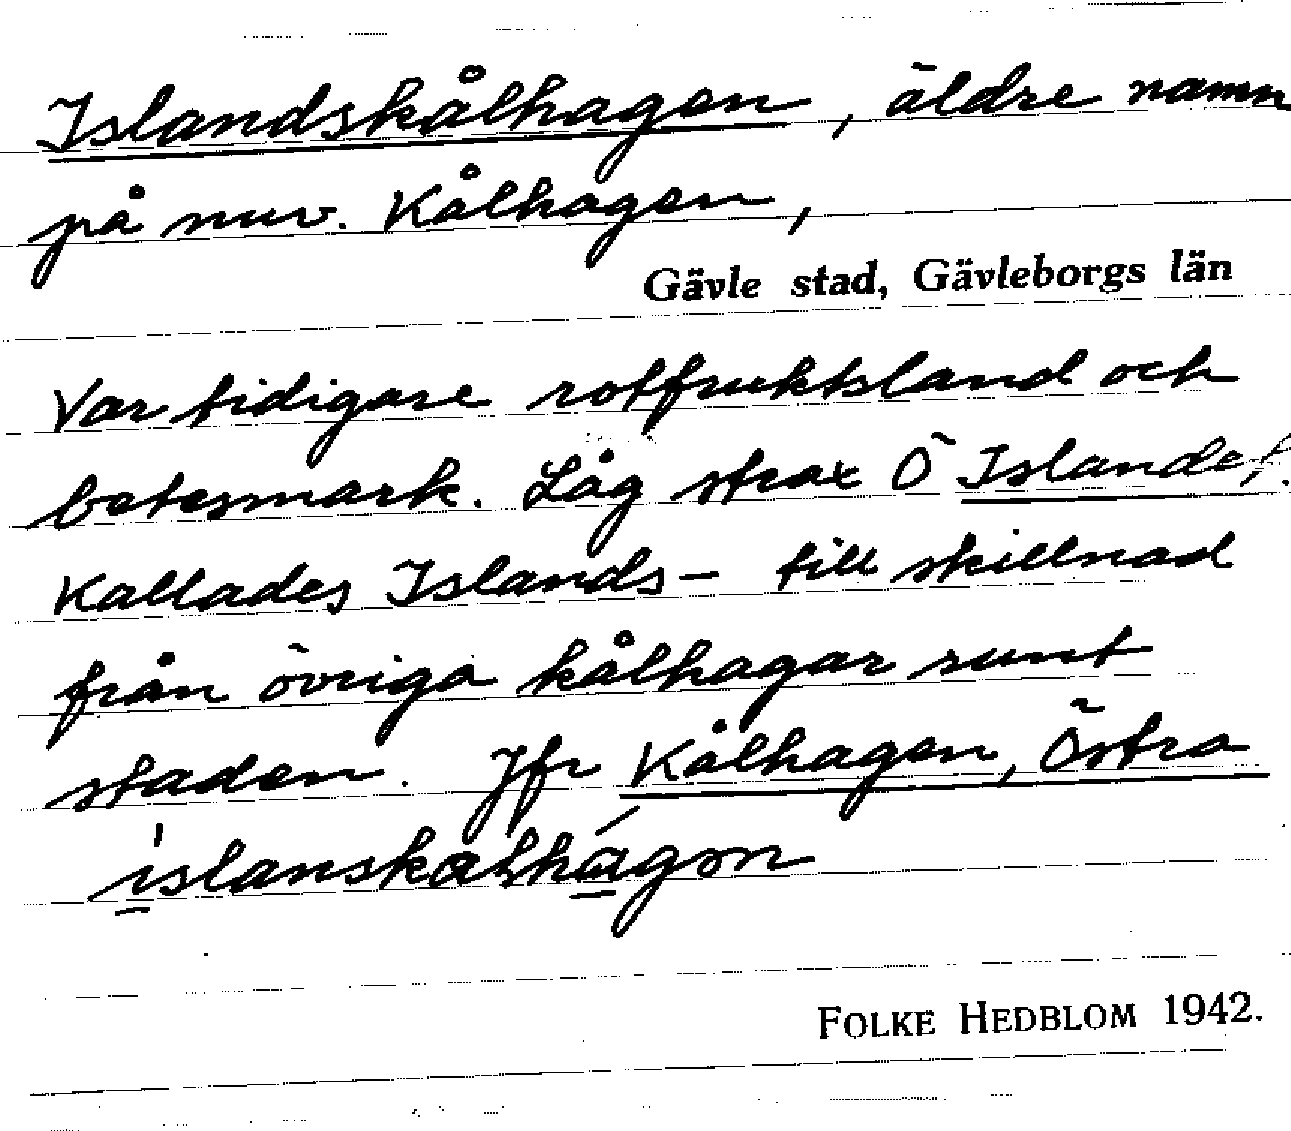 Islandskålhagen, äldre namn
på nuv. Kålhagen,
Gävle stad, Gävleborgs län
Var tidigare rotfruktsland och
betesmark. Låg strax Ö Islandet.
Kallades Islands- till skillnad
från övriga kålhagar runt
staden. Jfr Kålhagen, Östra
FOLKE HEDBLOM 1942.